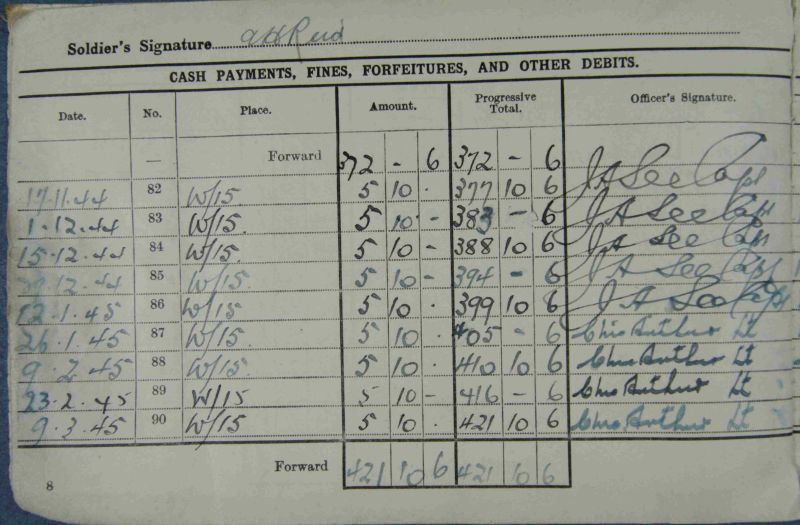 Soldier's Signature A H Reid
CASH PAYMENTS, FINES, FORFEITURES, AND OTHER DEBITS.
Date. No. Place. Amount. Progressive Total. Officer's Signature.
— Forward 372 - 6 372 - 6
17.11.44 82 W/15 5 10 . 377 10 6 J A See Capt
1.12.44 83 W/15. 5 10 - 383 - 6 J A See Capt
15.12.44 84 W/15. 5 10 - 388 10 6 J A See Capt
.12.44 85 W/15. 5 10 - 394 - 6 J A See Capt
12.1.45 86 W/15 5 10 . 399 10 6 J A See Capt
26.1.45 87 W/15. 5 10 . 405 - 6 Chris Arthur Lt
9.2.45 88 W/15 5 10 . 410 10 6 Chris Arthur Lt
23.2.45 89 W/15 5 10 - 416 - 6 Chris Arthur Lt
9.3.45 90 W/15 5 10 . 421 10 6 Chris Arthur Lt
Forward 421 10 6 421 10 6
8